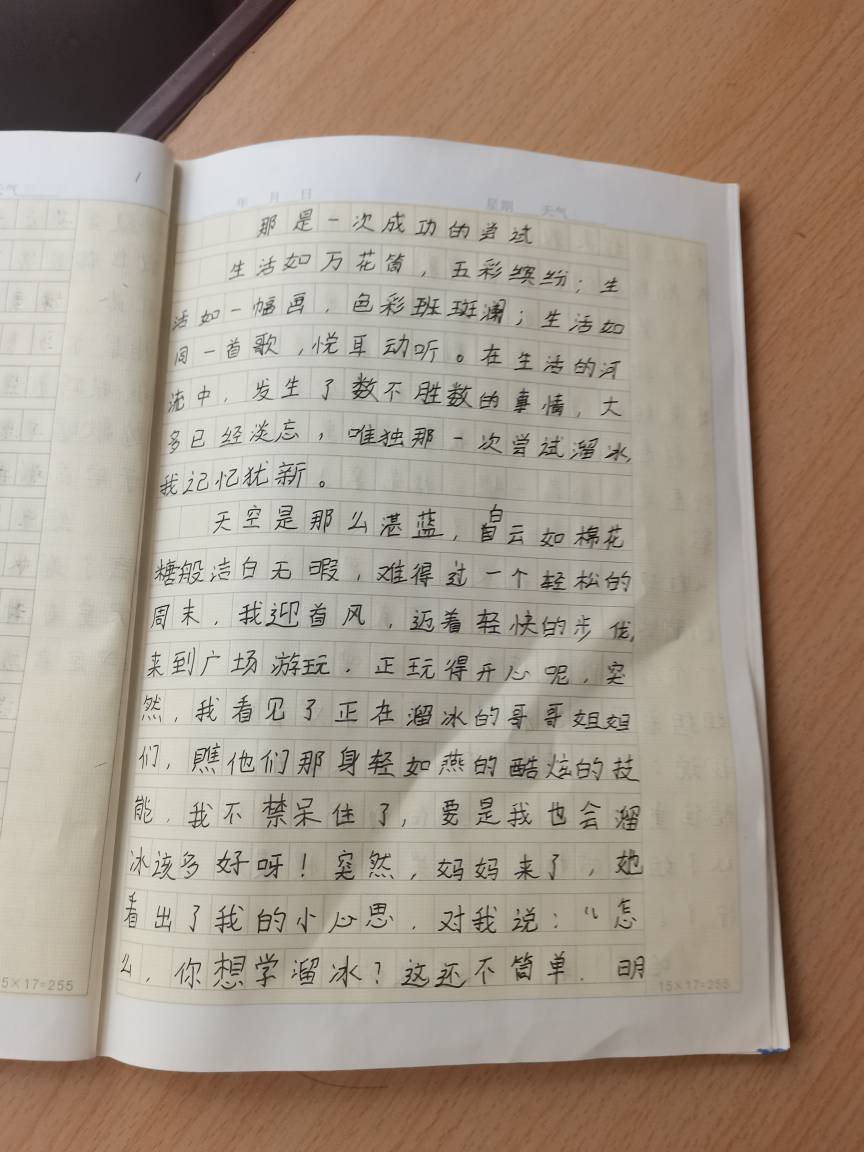 年 月 日 星期 天气
那是一次成功的尝试
生活如万花筒，五彩缤纷；生
活如一幅画，色彩班斑斓；生活如
同一首歌，悦耳动听。在生活的河
流中，发生了数不胜数的事情，大
多已经淡忘，唯独那一次尝试溜冰，
我记忆犹新。
天空是那么湛蓝，白云如棉花
糖般洁白无暇，难得过一个轻松的
周末，我迎着风，迈着轻快的步伐，
来到广场游玩．正玩得开心呢，突
然，我看见了正在溜冰的哥哥姐姐
们，瞧他们那身轻如燕的酷炫的技
能，我不禁呆住了，要是我也会溜
冰该多好呀！突然，妈妈来了，她
看出了我的小心思．对我说：“怎
么，你想学溜冰？这还不简单．明
5×17=255
15×17=255